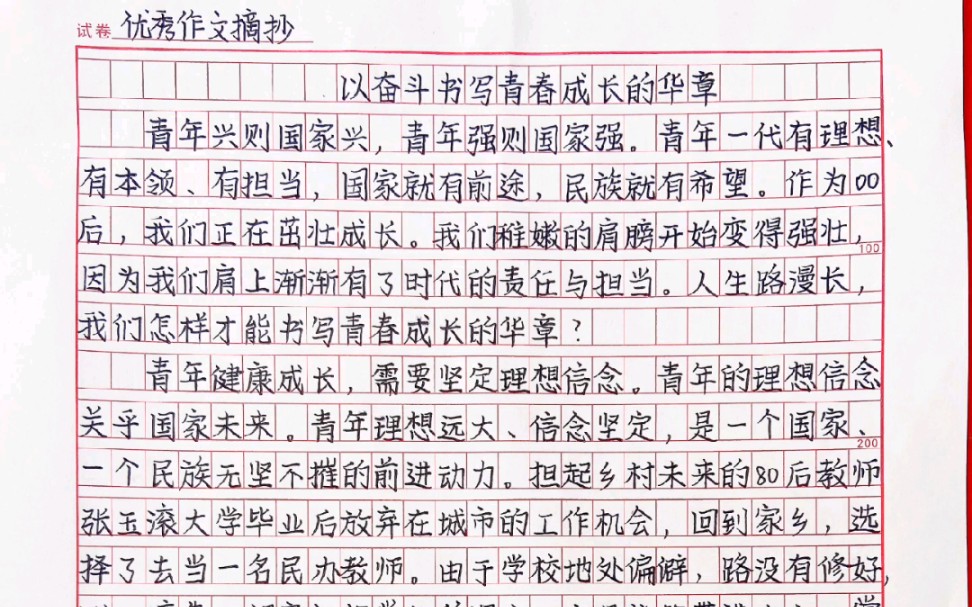 试卷 优秀作文摘抄
以奋斗书写青春成长的华章
青年兴则国家兴，青年强则国家强。青年一代有理想、
有本领、有担当，国家就有前途，民族就有希望。作为00
后，我们正在茁壮成长。我们稚嫩的肩膀开始变得强壮，
100
因为我们肩上渐渐有了时代的责任与担当。人生路漫长，
我们怎样才能书写青春成长的华章？
青年健康成长，需要坚定理想信念。青年的理想信念
关乎国家未来。青年理想远大、信念坚定，是一个国家、
200
一个民族无坚不摧的前进动力。担起乡村未来的80后教师
张玉滚大学毕业后放弃在城市的工作机会，回到家乡，选
择了去当一名民办教师。由于学校地处偏僻，路没有修好，